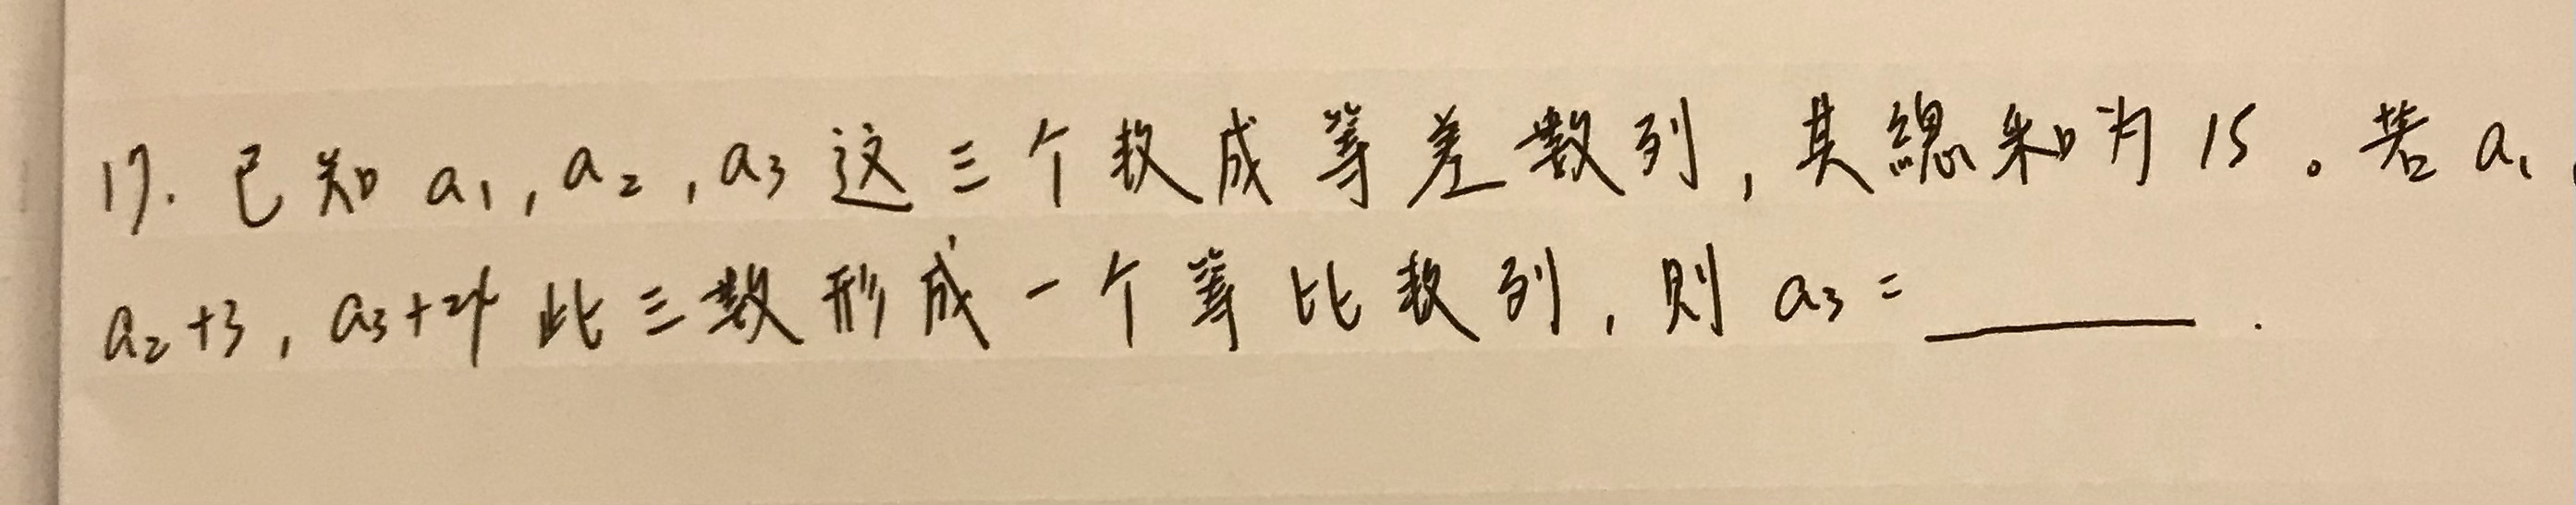 17. 已知 a₁, a₂, a₃ 这三个数成等差数列, 其總和为 15 。若 a₁,
a₂+3, a₃+24 此三数形成一个等比数列, 则 a₃ = ______ .